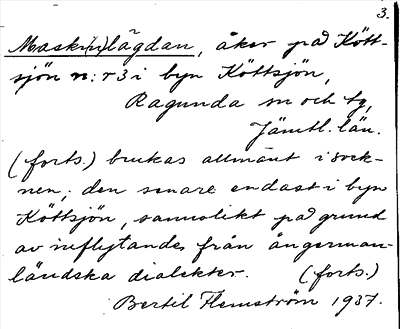 3.
Maskin(n)lägdan, åker på Kött-
sjön n:r 3 i byn Köttsjön,
Ragunda sn och tg,
Jämtl. län.
(forts.) brukas allmänt i sock-
nen; den senare endast i byn
Köttsjön, sannolikt på grund
av inflytandes från ångerman-
ländska dialekter. (forts.)
Bertil Flemström 1937.